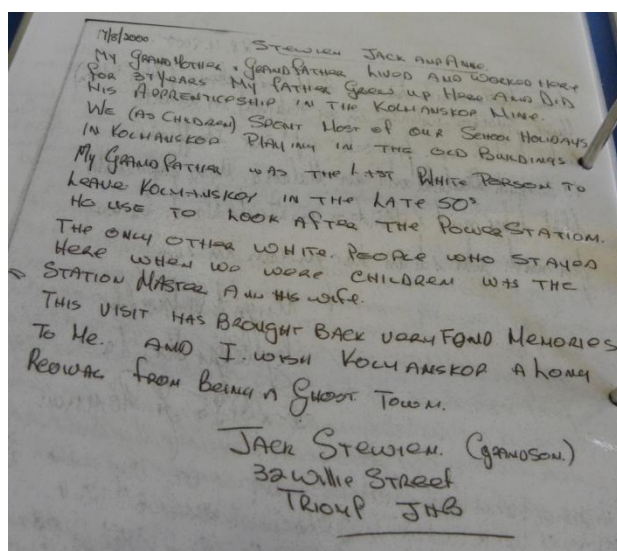 17/8/2000.
STEWIEN JACK AND ANNE.
MY GRANDMOTHER & GRANDFATHER LIVED AND WORKED HERE
FOR 37 YEARS MY FATHER GREW UP HERE AND DID
HIS APPRENTICESHIP IN THE KOLMANSKOP MINE.
WE (AS CHILDREN) SPENT MOST OF OUR SCHOOL HOLIDAYS
IN KOLMANSKOP PLAYING IN THE OLD BUILDINGS
MY GRANDFATHER WAS THE LAST WHITE PERSON TO
LEAVE KOLMANSKOP IN THE LATE 50s
HE USE TO LOOK AFTER THE POWERSTATION.
THE ONLY OTHER WHITE PEOPLE WHO STAYED
HERE WHEN WE WERE CHILDREN WAS THE
STATION MASTER AND HIS WIFE.
THIS VISIT HAS BROUGHT BACK VERY FOND MEMORIES
TO ME. AND I WISH KOLMANSKOP A LONG
FROM BEING A GHOST TOWN.
JACK STEWIEN. (GRANDSON.)
32 WILLIE STREET
TRIOMF JHB